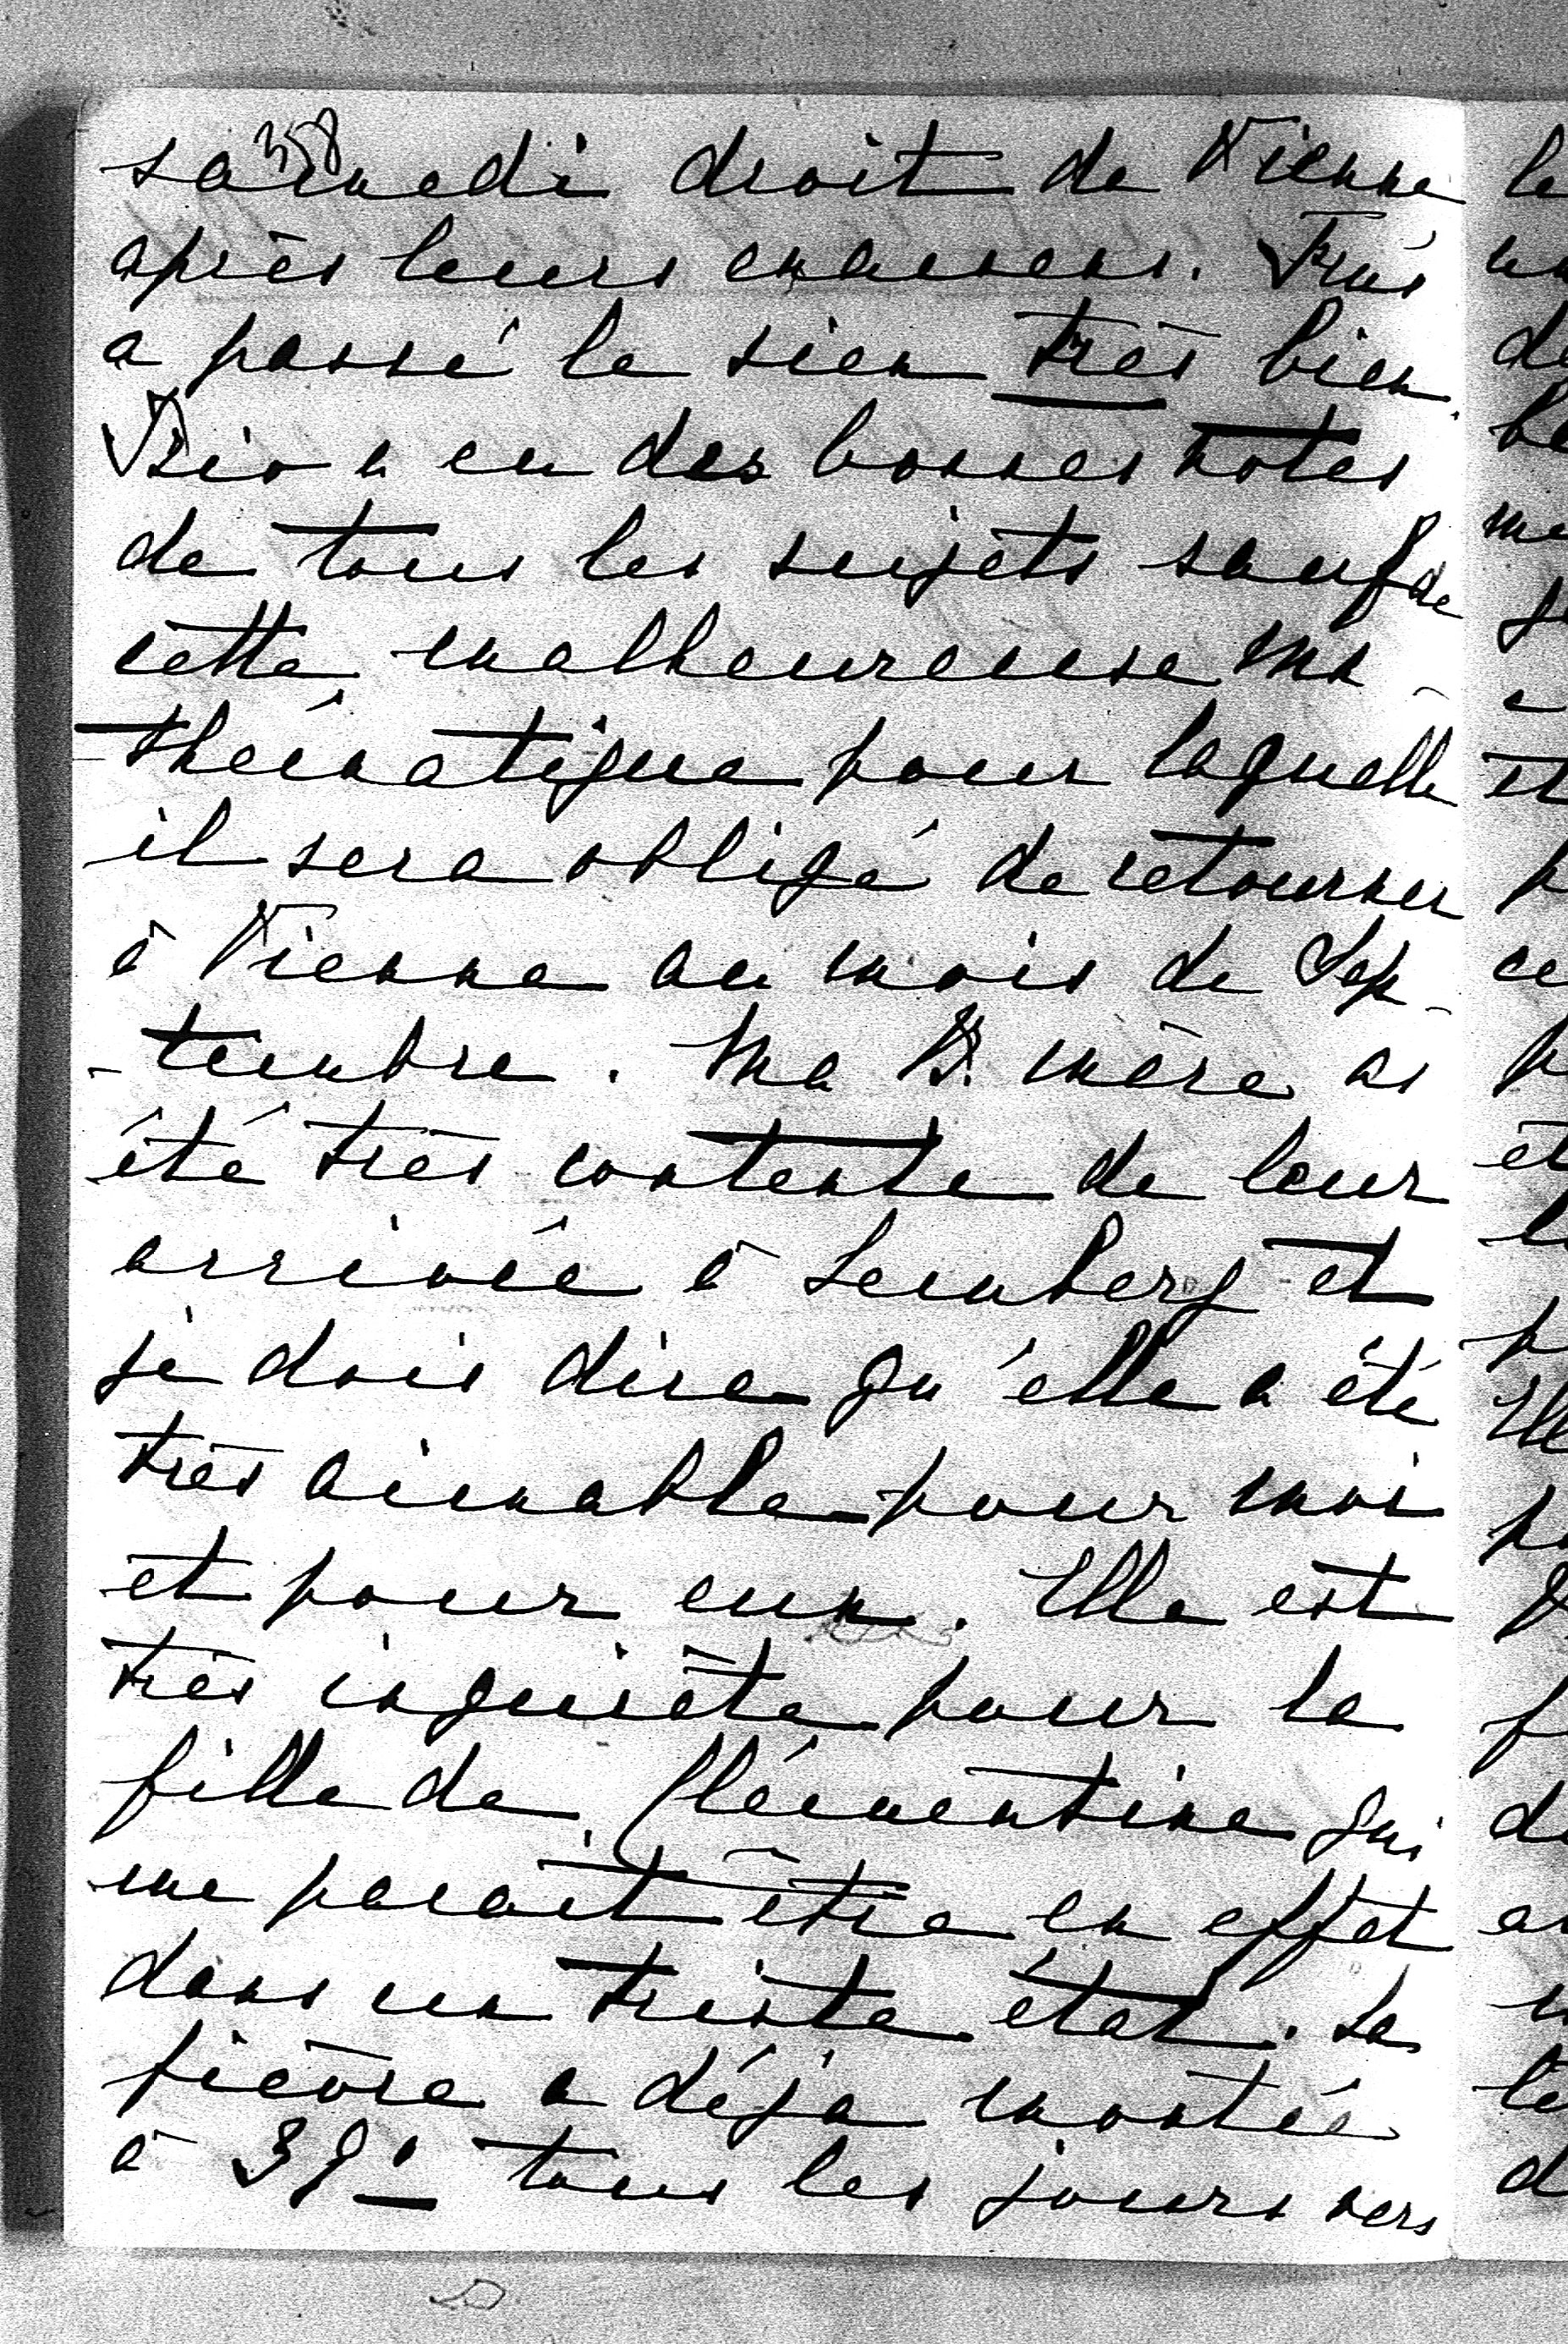 358
samedi droit de Vienne
après leurs examens. Fris
a passé le sien très bien.
a eu des bonnes notes
de tous les sujets sauf de
cette malheureuse ma-
-thématique pour laquelle
il sera obligé de retourner
à Vienne au mois de Sep-
-tembre. Ma B. mère a
été très contente de leur
arrivée à Lemberg et
je dois dire qu'elle a été
très aimable pour moi
et pour eux. Elle est
très inquiète pour la
fille de Clémentine qui
me parait être en effet
dans un triste état. La
fièvre a déjà montée
à tous les jours vers